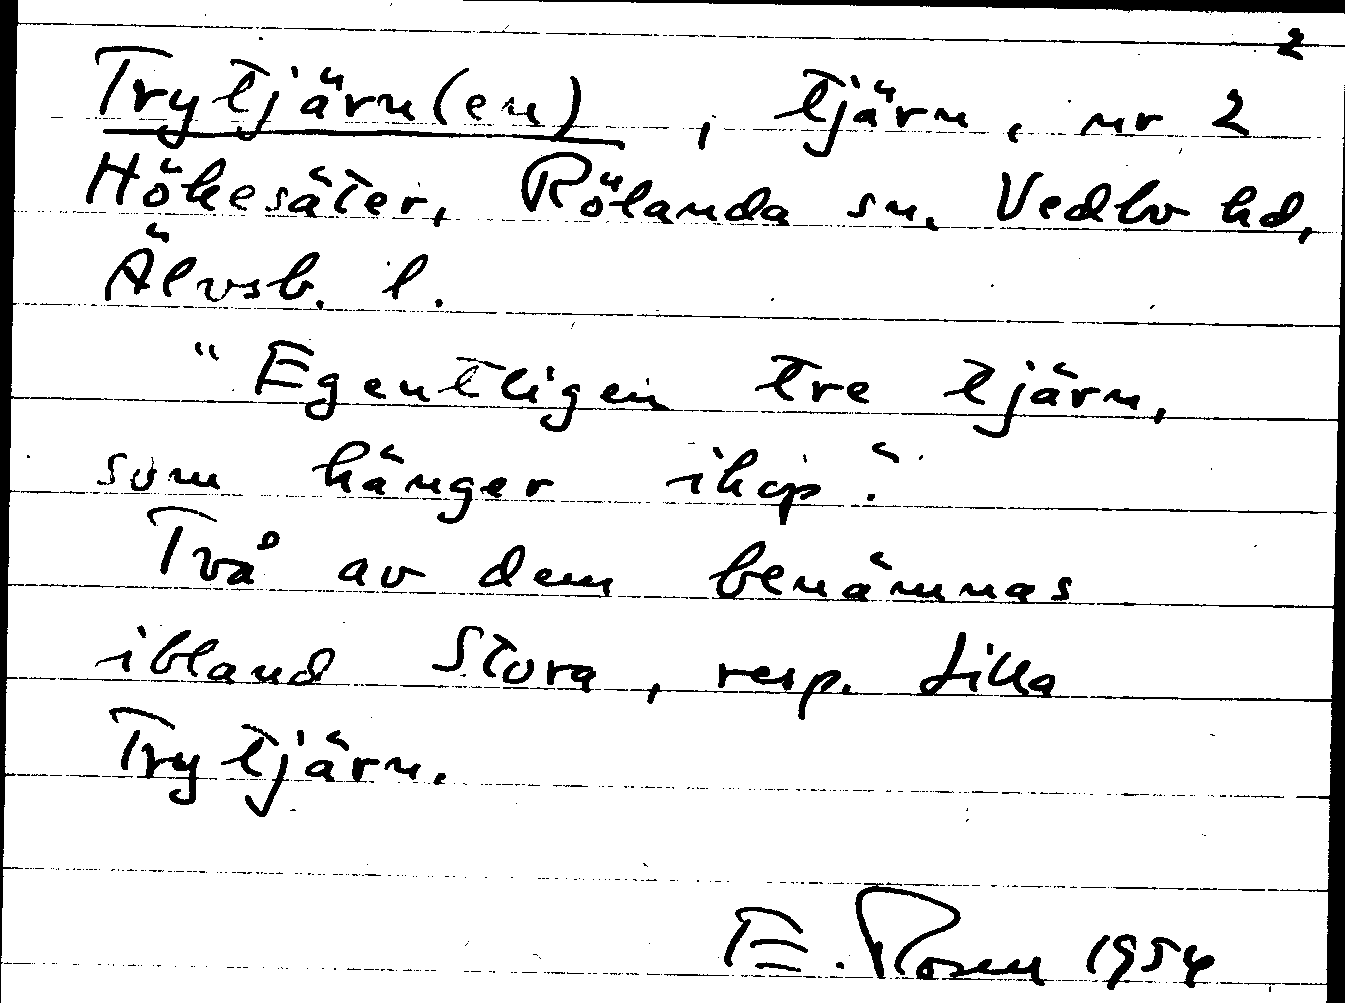 2
Trytjärn(en), tjärn, nr 2
Hökesäter, Rölanda sn. Vedbo hd,
Älvsb. l.
"Egentligen tre tjärn,
som hänger ihop".
Två av dem benämnas
ibland Stora, resp. Lilla
Trytjärn.
E. Rosen 1954